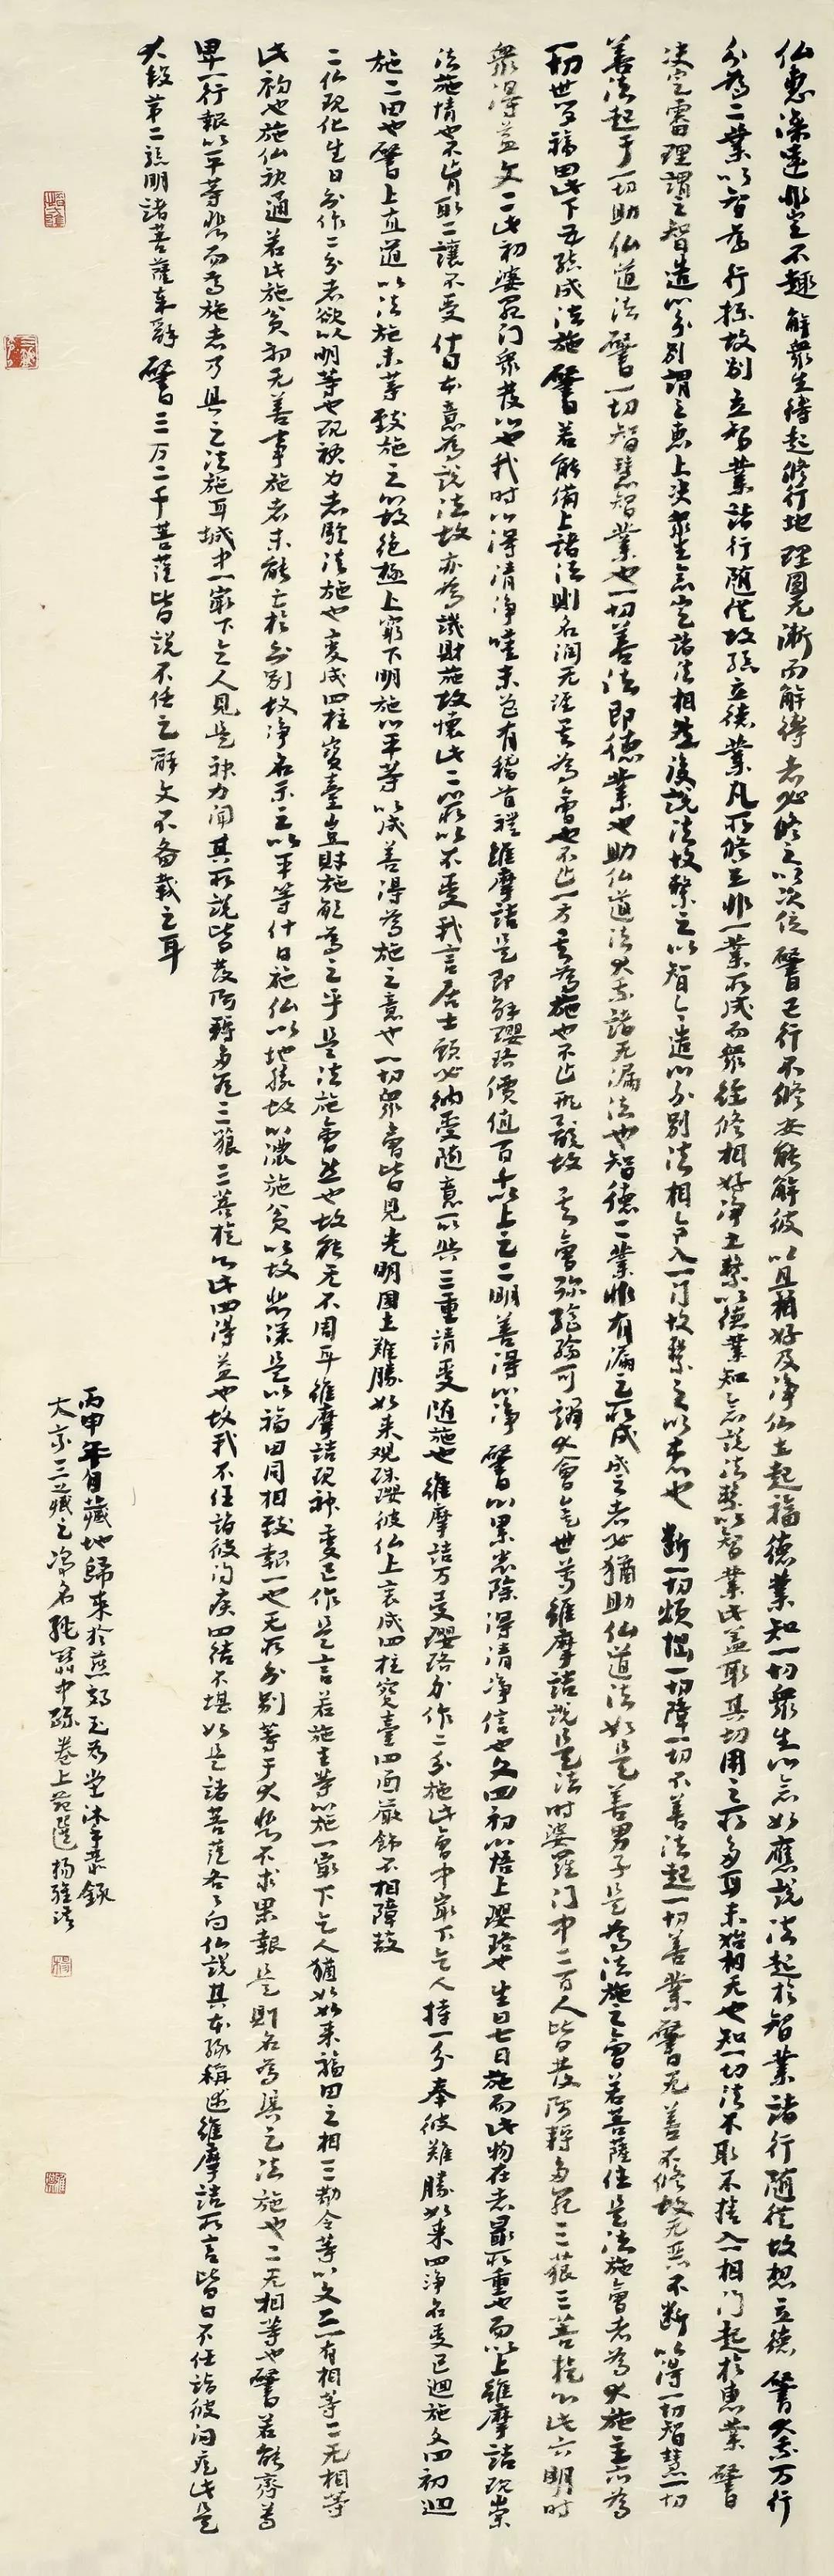 仏惠深遠非定不趣解衆生待起修行地理圓無漸而解得者必修之以次位肇曰行不修安能解彼以且相好及浄仏土起福德業知一切衆生心念如應說法起於智業諸行随從故惣立德肇大乗万行
分為二業以智為行標故别立智業諸行随從故惣立德業凡所修豈非一業所成而衆經修相好浄土繫以德業知念說法繫以智業此盖取其切用之所多耳未始相無也知一切法不取不捨入一相門起於惠業肇
决定審理謂之智造心分别謂之惠上决衆生念定諸法相然後說法故繫之以智今造心分别法相令入一門故繫之以惠也断一切煩惱一切障一切不善法起一切善業肇無善不修故無惡不断以得一切智慧一切
善法起于一切助仏道法肇一切智慧智業也一切善法即德業也助仏道法大乗諸無漏法也智德二業非有漏之所成成之者必猶助仏道法如是善男子是為法施之會若菩薩住是法施會者為大施主亦為
一切世間福田此下五結成法施肇若能備上諸法則名潤無涯其為會也不止一方其為施也不止形骸故其會弥綸可謂大會矣世尊維摩詰說是法時婆羅門中二百人皆發阿耨多羅三藐三菩提心此六明時
衆得益文二此初婆羅門衆發心也我時心得清浄嘆未曾有稽首禮維摩詰足即解瓔珞價值百千以上之二明善得心浄肇心累悉除得清浄信也文四初心悟上瓔珞也生曰七日施而此物在者最所重也而以上維摩詰現崇
法施情也不肯取二讓不受什曰本意為說法故亦為譏財施故懷此二心所以不受我言居士願必納受随意所與三重請受随施也維摩詰乃受瓔珞分作二分施此會中最下乞人持一分奉彼難勝如来四浄名受已迴施文四初迴
施二田也肇上直道以法施未等致施之心故絶極上窮下明施心平等以成善得為施之意也一切衆會皆見光明國土難勝如来觀珠瓔彼仏上衰成四柱寶臺四面嚴飾不相障故
二仏現化生曰分作二分者欲以明等也現神力者驗法施也変成四柱寶臺豈財施能為之乎是法施會然也故能無不周耳維摩詰現神変已作是言若施主等心施一最下乞人猶如如来福田之相三勸令等心文二一有相等二無相等
此初也施仏神通若此施貧初無善事施者未能亡於分别故浄名示之以平等什曰施仏以地勝故心濃施貧以故悲深是以福田同相致報一也無所分别等于大悲不求果報是則名為具足法施也二無相等也肇若能齊尊
卑一行報以平等悲而為施者乃具足法施耳城中一最下乞人見是神力聞其所說皆發阿耨多羅三藐三菩提心此四得益也故我不任詣彼问疾四結不堪如是諸菩薩各各向仏說其本緣稱述維摩詰所言皆曰不任詣彼问疾此是
大段第二惣明諸菩薩来辞肇三万二千菩薩皆說不任之辞文不备載之耳
丙申年自藏地歸来於燕郊玉為堂沐手恭錄
大宗三藏之浄名經關中疏卷上節選楊